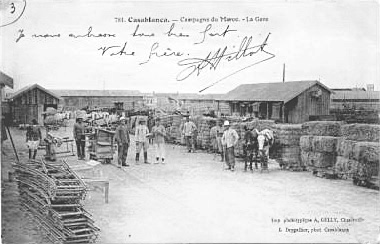 3
781. Casablanca. — Campagne du Maroc. - La Gare
Je vous embrasse tous bien fort
Votre frère.
Imp. phototypique A. GELLY,
phot. Casablanca